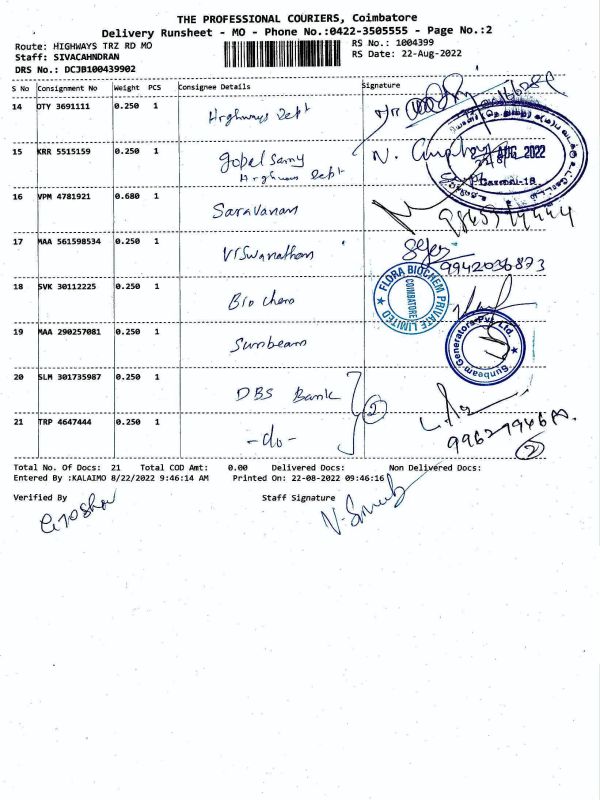 THE PROFESSIONAL COURIERS, Coimbatore
Delivery Runsheet - MO - Phone No.:0422-3505555 - Page No.:2
Route: HIGHWAYS TRZ RD MO
RS No.: 1004399
Staff: SIVACAHNDRAN
RS Date: 22-Aug-2022
DRS No.: DCJB100439902
S No Consignment No Weight PCS Consignee Details Signature
14 OTY 3691111 0.250 1 Highways Dept
15 KRR 5515159 0.250 1 Gopal Samy
Highways Dept
AUG 2022
16 VPM 4781921 0.680 1 Saravanan
17 MAA 561598534 0.250 1 Viswanathan
9942036873
18 SVK 30112225 0.250 1 Bio Chem
FLORA BIOCHEM PRIVATE LIMITED
COIMBATORE
19 MAA 290257081 0.250 1 Sunbeam
Sunbeam Generators Pvt. Ltd.
20 SLM 301735987 0.250 1 DBS Bank
2
21 TRP 4647444 0.250 1 -do-
2
Total No. Of Docs: 21 Total COD Amt: 0.00 Delivered Docs: Non Delivered Docs:
Entered By :KALAIMO 8/22/2022 9:46:14 AM Printed On: 22-08-2022 09:46:16
Verified By Staff Signature